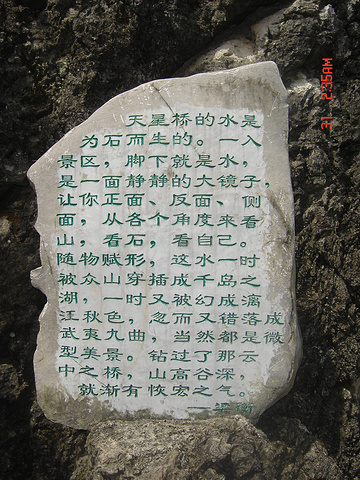 天星桥的水是
为石而生的。一入
景区，脚下就是水，
是一面静静的大镜子，
让你正面、反面、侧
面，从各个角度来看
山，看石，看自己。
随物赋形，这水一时
被众山穿插成千岛之
湖，一时又被幻成漓
江秋色，忽而又错落成
武夷九曲，当然都是微
型美景。钻过了那云
中之桥，山高谷深，
就渐有恢宏之气。
——梁衡
31 2:35AM